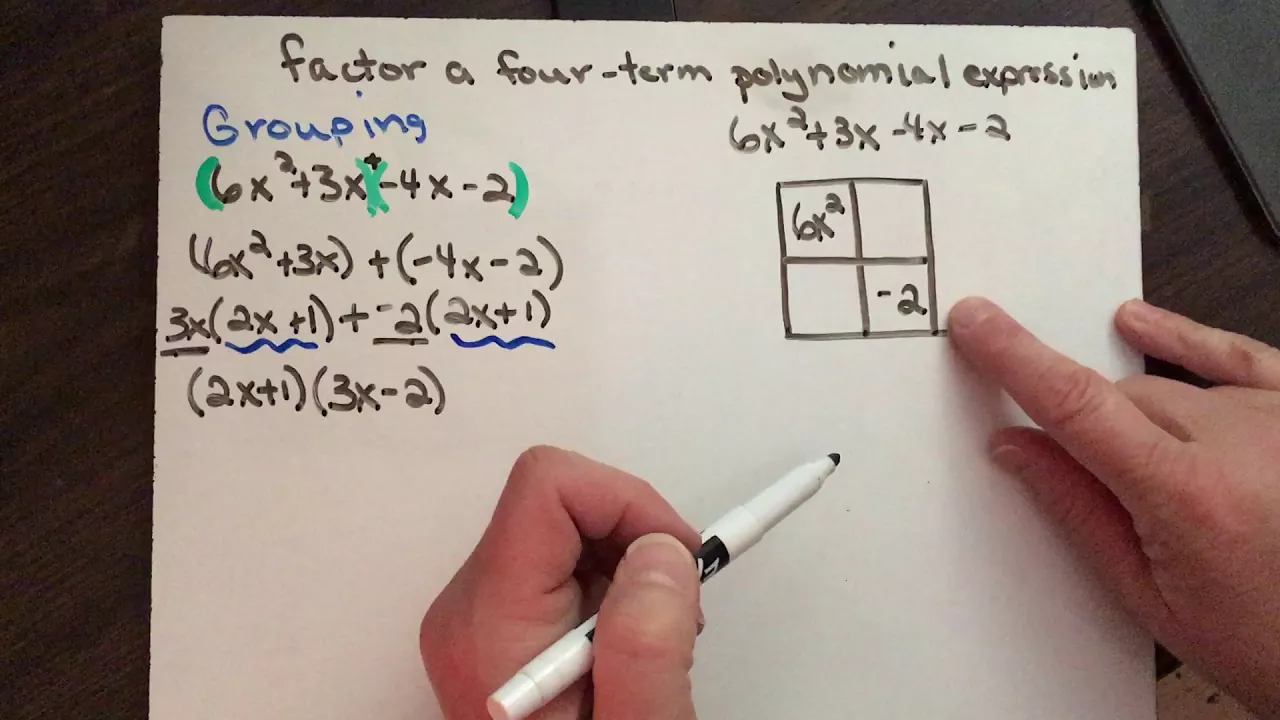 factor a four-term polynomial expression
Grouping
(6x²+3x)+(-4x-2)
(6x²+3x)+(-4x-2)
3x(2x+1)+-2(2x+1)
(2x+1)(3x-2)
6x²+3x-4x-2
6x²
-2